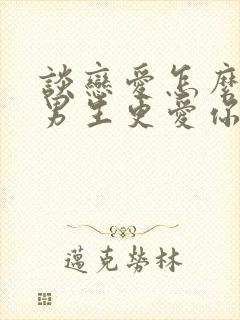 談戀愛怎麼
男生更愛你
邁克勞林